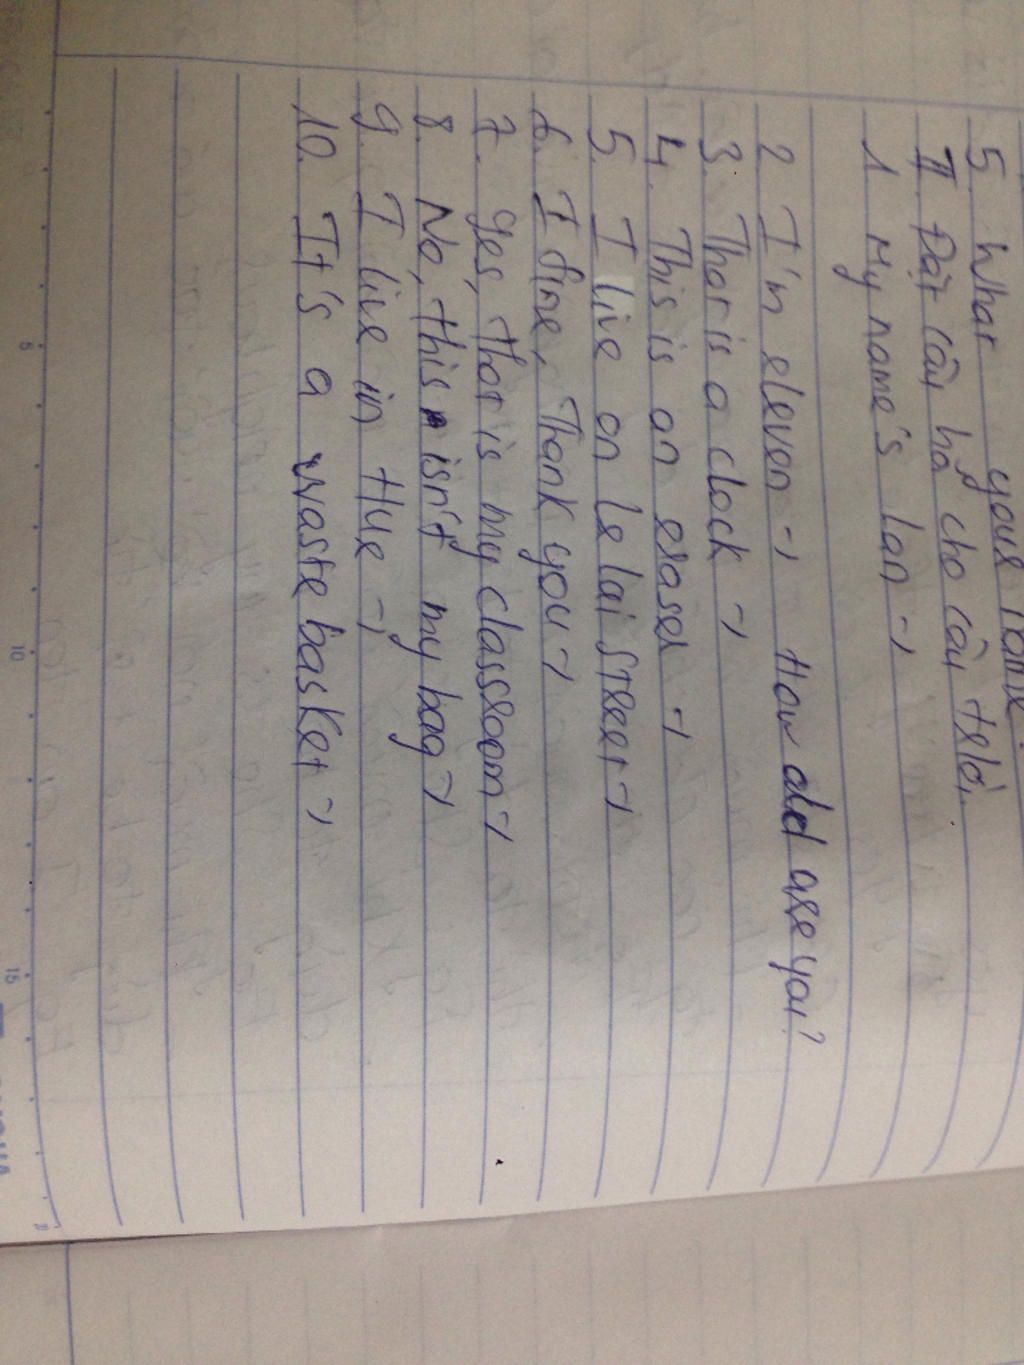 5. What your name
II. Đặt câu hỏi cho câu trả lời.
1. My name's Lan →
2. I'm eleven → How old are you?
3. That is a clock →
4. This is an eraser →
5. I live on Le Lai Street →
6. I fine, Thank you →
7. Yes, that is my classroom →
8. No, this isn't my bag →
9. I live in Hue →
10. It's a waste basket →
5
10
15